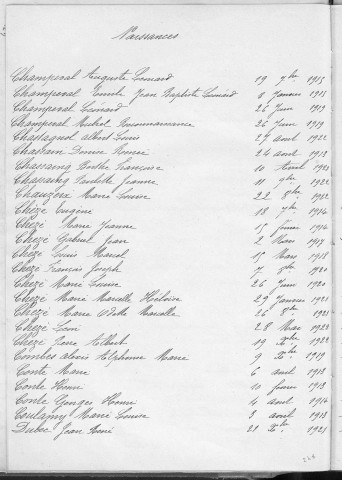 Naissances
Champeval Auguste Léonard 19 7bre 1915
Champeval Emile Jean Baptiste Léonard 8 Janvier 1918
Champeval Léonard 26 Juin 1919
Champeval Michel 26 Juin 1919
Chassagnol Albert Louis 27 avril 1922
Chastain Denise Renée 24 avril 1918
Chassaing Berthe Françoise 10 Avril 1921
Chassaing Paulette Jeanne 11 7bre 1922
Chauzeix Marie Louise 22 8bre 1922
Chèze Eugène 18 7bre 1914
Chèze Marie Jeanne 15 février 1914
Chèze Gabriel Jean 2 Mars 1917
Chèze Louis Marcel 15 Mars 1918
Chèze François Joseph 7 8bre 1920
Chèze Marie Louise 26 Juin 1920
Chèze Marie Marcelle Héloïse 29 Janvier 1921
Chèze Marie Odette Marcelle 26 8bre 1921
Chèze Léon 28 Mai 1922
Chèze Pierre Albert 19 Xbre 1922
Combes Alexis Alphonse Marie 9 Xbre 1919
Conte Marie 6 avril 1913
Conte Henri 10 février 1918
Conte Georges Henri 4 avril 1914
Coulagny Marie Louise 3 avril 1913
Dubec Jean René 21 Xbre 1921